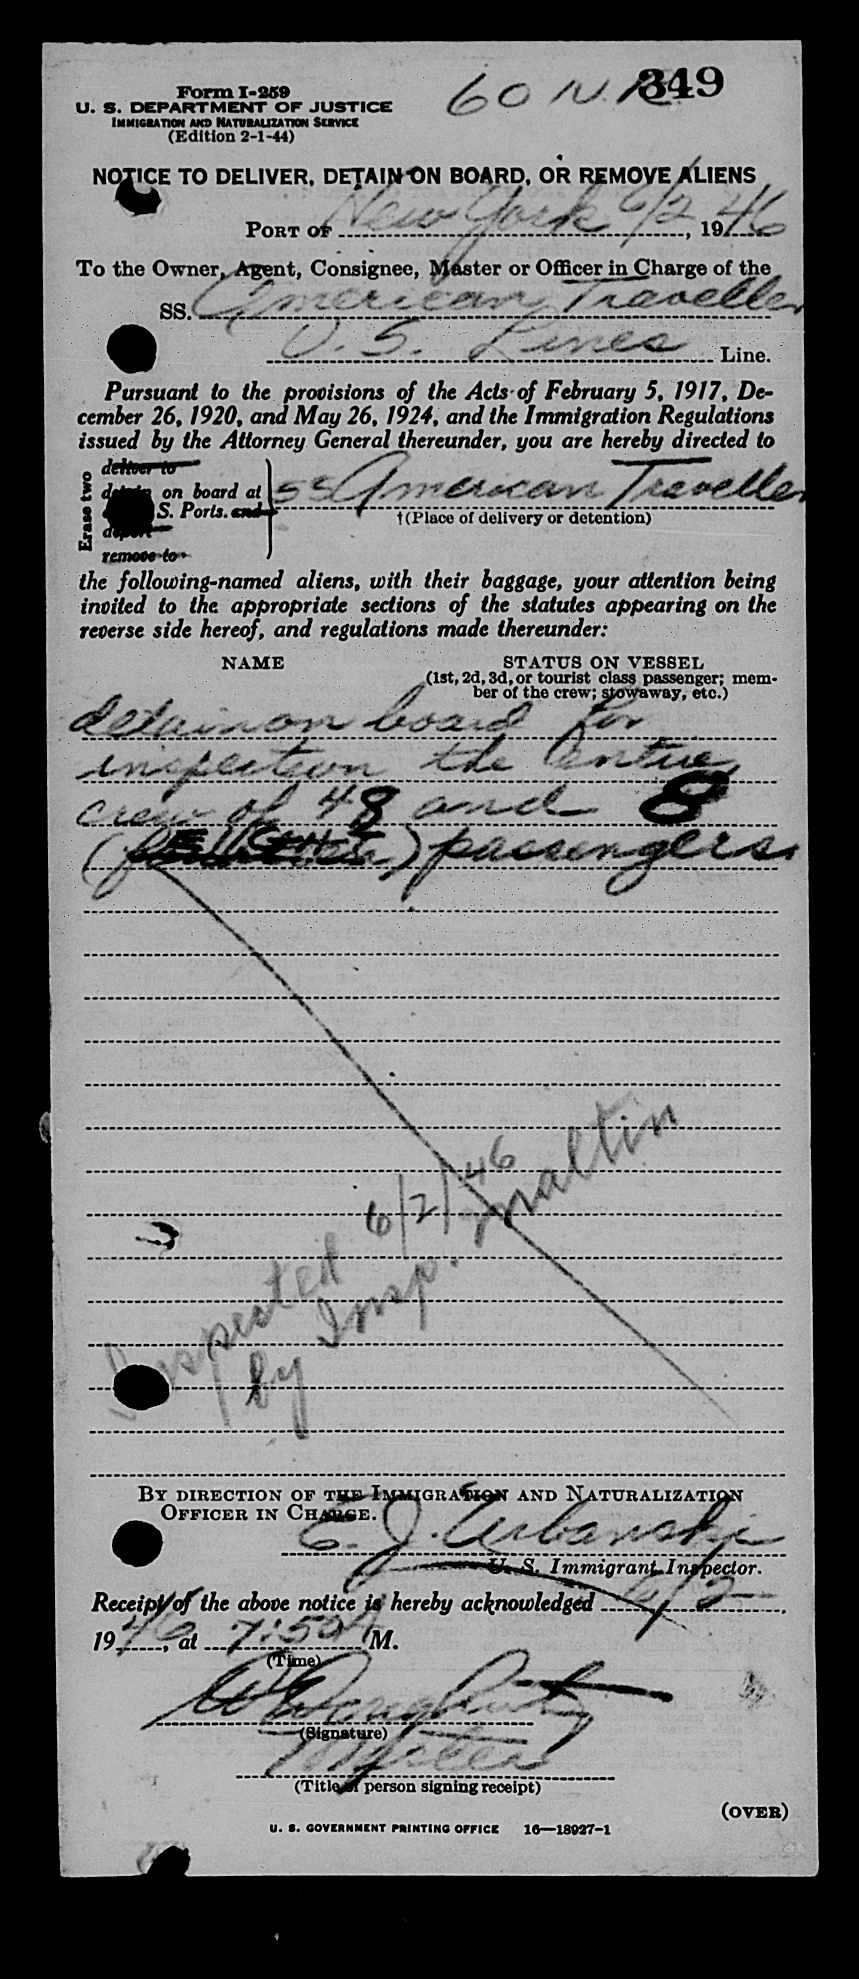 349
60 N.R.
Form I-259
U. S. DEPARTMENT OF JUSTICE
IMMIGRATION AND NATURALIZATION SERVICE
(Edition 2-1-44)
NOTICE TO DELIVER, DETAIN ON BOARD, OR REMOVE ALIENS
PORT OF New York 6/2, 1946
To the Owner, Agent, Consignee, Master or Officer in Charge of the
SS. American Traveller
U. S. Lines Line.
Pursuant to the provisions of the Acts of February 5, 1917, De-
cember 26, 1920, and May 26, 1924, and the Immigration Regulations
issued by the Attorney General thereunder, you are hereby directed to
Erase two
deliver to
detain on board at
S. Ports. and
deport
remove to
SS American Traveller
†(Place of delivery or detention)
the following-named aliens, with their baggage, your attention being
invited to the appropriate sections of the statutes appearing on the
reverse side hereof, and regulations made thereunder:
NAME STATUS ON VESSEL
(1st, 2d, 3d, or tourist class passenger; mem-
ber of the crew; stowaway, etc.)
detain on board for
inspection the entire
crew of 48 and 8
(EIGHT) passengers.
Inspected 6/2/46
by Insp. Maltin
BY DIRECTION OF THE IMMIGRATION AND NATURALIZATION
OFFICER IN CHARGE.
E. J. Urbanski
U. S. Immigrant Inspector.
Receipt of the above notice is hereby acknowledged 6/2
1946, at 7:50 A M.
(Time)
(Signature)
Master
(Title of person signing receipt)
(OVER)
U. S. GOVERNMENT PRINTING OFFICE 16—18927-1